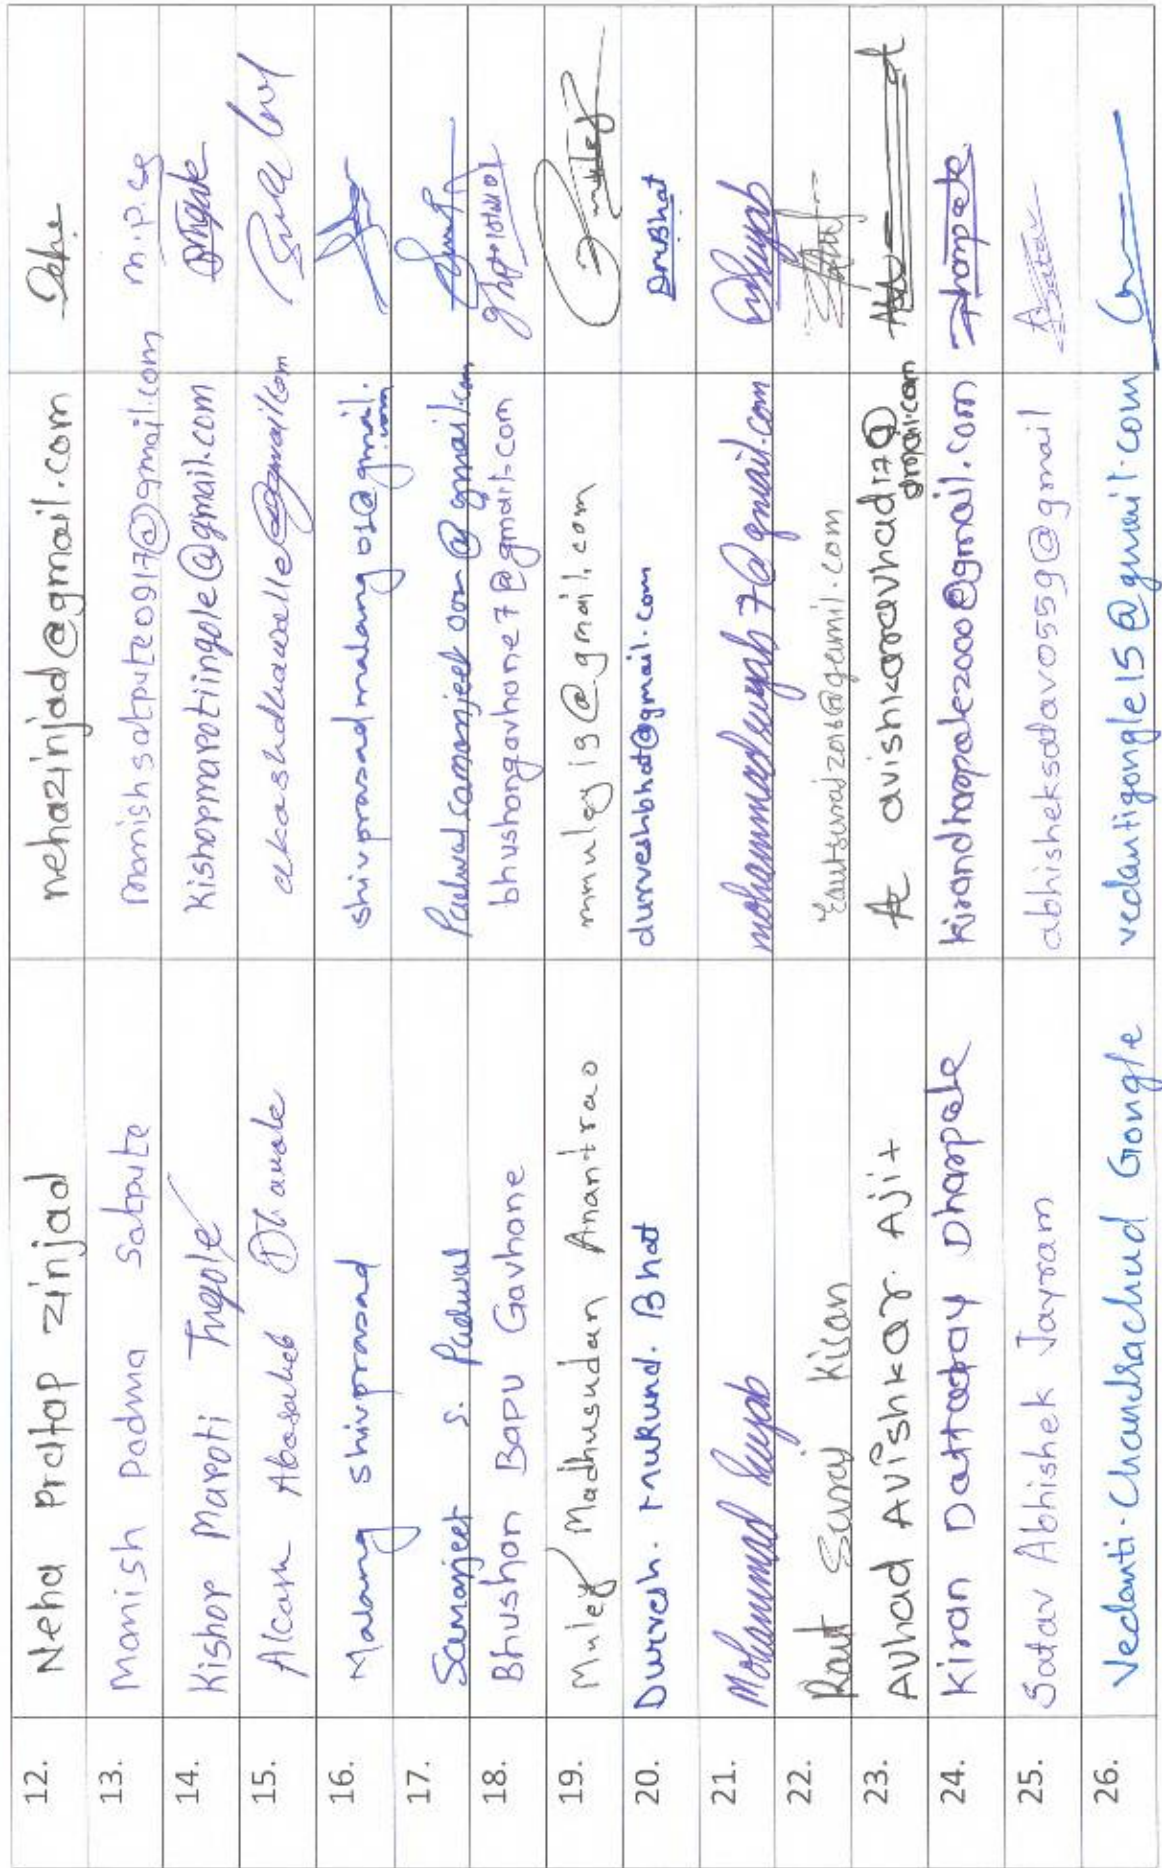 12. Neha Pratap Zinjad nehazinjad@gmail.com
13. Manish Padma Satpute manishsatpute0917@gmail.com M.P.S
14. Kishor Maroti Ingole Kishormarotiingole@gmail.com
15. Akash Abasaheb Dhavale
16. Malang shivprasad shivprasadmalang01@gmail.com
17. Samarjeet S. Padwal
18. Bhushan Bapu Gavhane bhushangavhane7@gmail.com
19. Muley Madhusudan Anantrao mmuley19@gmail.com
20. Durvesh. Mukund. Bhat durveshbhat@gmail.com DMBhat
21. Mohammad Suyab mohammadsuyab7@gmail.com
22. Raut Suraj Kisan rautsuraj2016@gmail.com
23. Avhad Avishkar. Ajit avishkaravhad17@gmail.com
24. Kiran Dattatray Dharpale kirandharpale2000@gmail.com
25. Satav Abhishek Jayram abhisheksatav0559@gmail
26. Vedanti. Chandrachud Gongle vedantigongle15@gmail.com